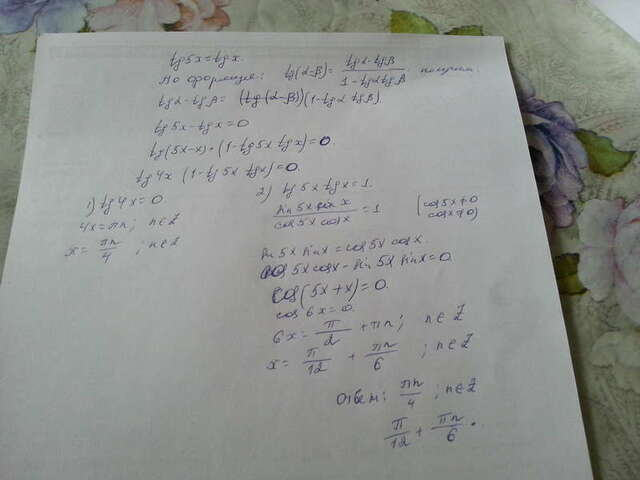 tg5x = tgx.
По формуле: tg(α-β) = (tgα - tgβ)/(1 - tgα tgβ) получим:
tgα - tgβ = (tg(α-β))(1 - tgα tgβ)
tg5x - tgx = 0
tg(5x-x)·(1 - tg5x tgx) = 0.
tg4x (1 - tg5x tgx) = 0.
1) tg4x = 0.
4x = πn; n∈Z
x = πn/4; n∈Z
2) tg5x tgx = 1.
(sin5x sinx)/(cos5x cosx) = 1
(cos5x≠0
cosx≠0)
sin5x sinx = cos5x cosx.
cos5x cosx - sin5x sinx = 0.
cos(5x+x) = 0.
cos6x = 0.
6x = π/2 + πn; n∈Z
x = π/12 + πn/6; n∈Z
Ответ: πn/4; n∈Z
π/12 + πn/6.